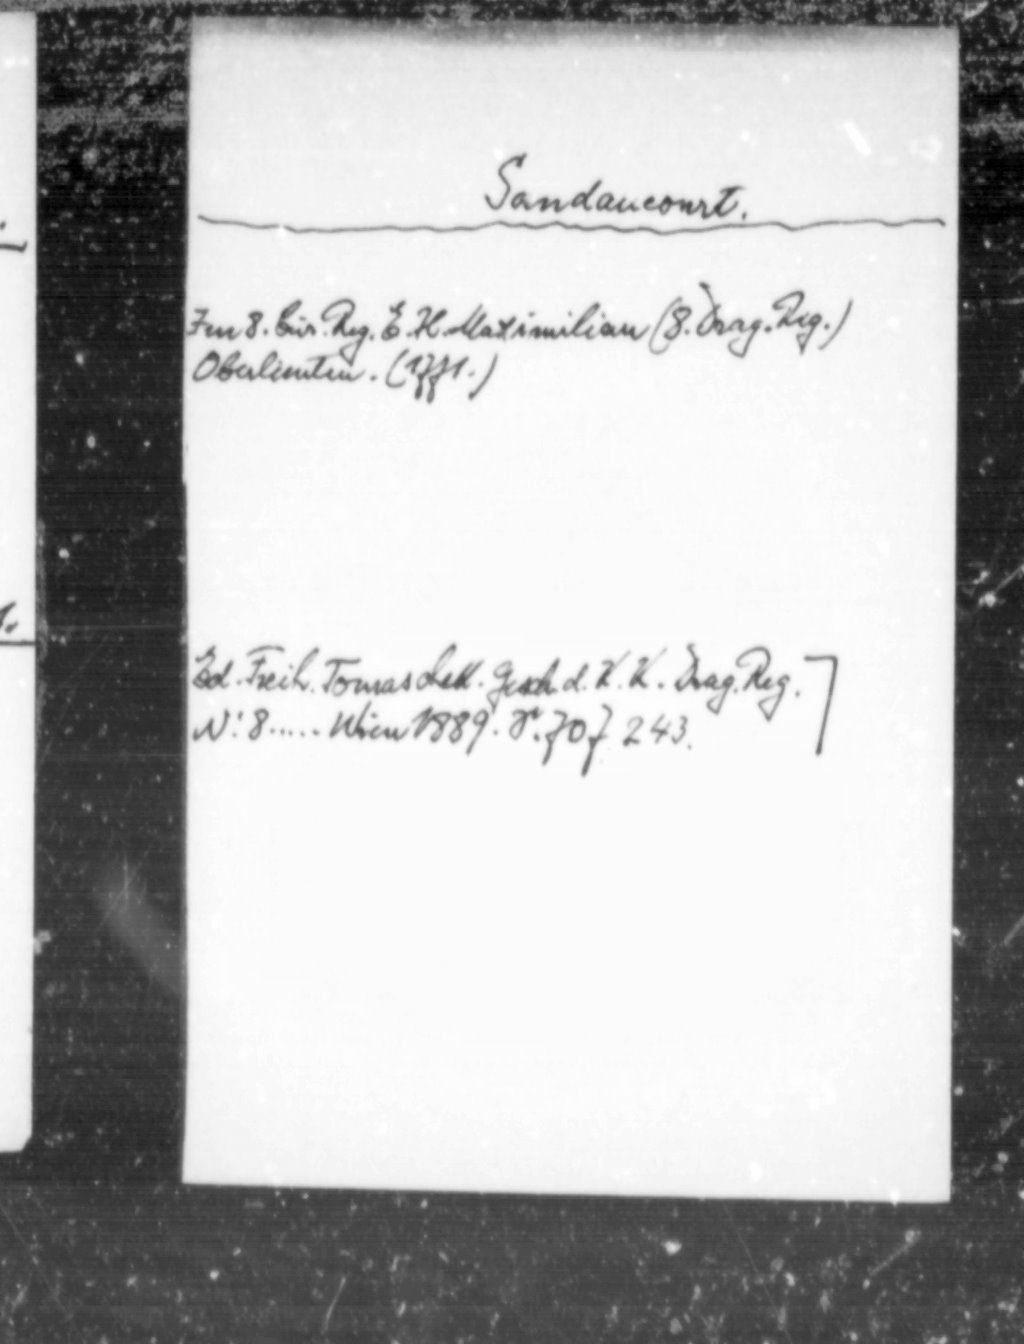 Sandaucourt.
Im 8. Cür. Reg. E. H. Maximilian (8. Drag. Reg.)
Oberleuten. (1771.)
Ed. Freih. Tomaschek. Gesch. d. K. K. Drag. Reg.
Nº 8..... Wien 1889. 707 243.